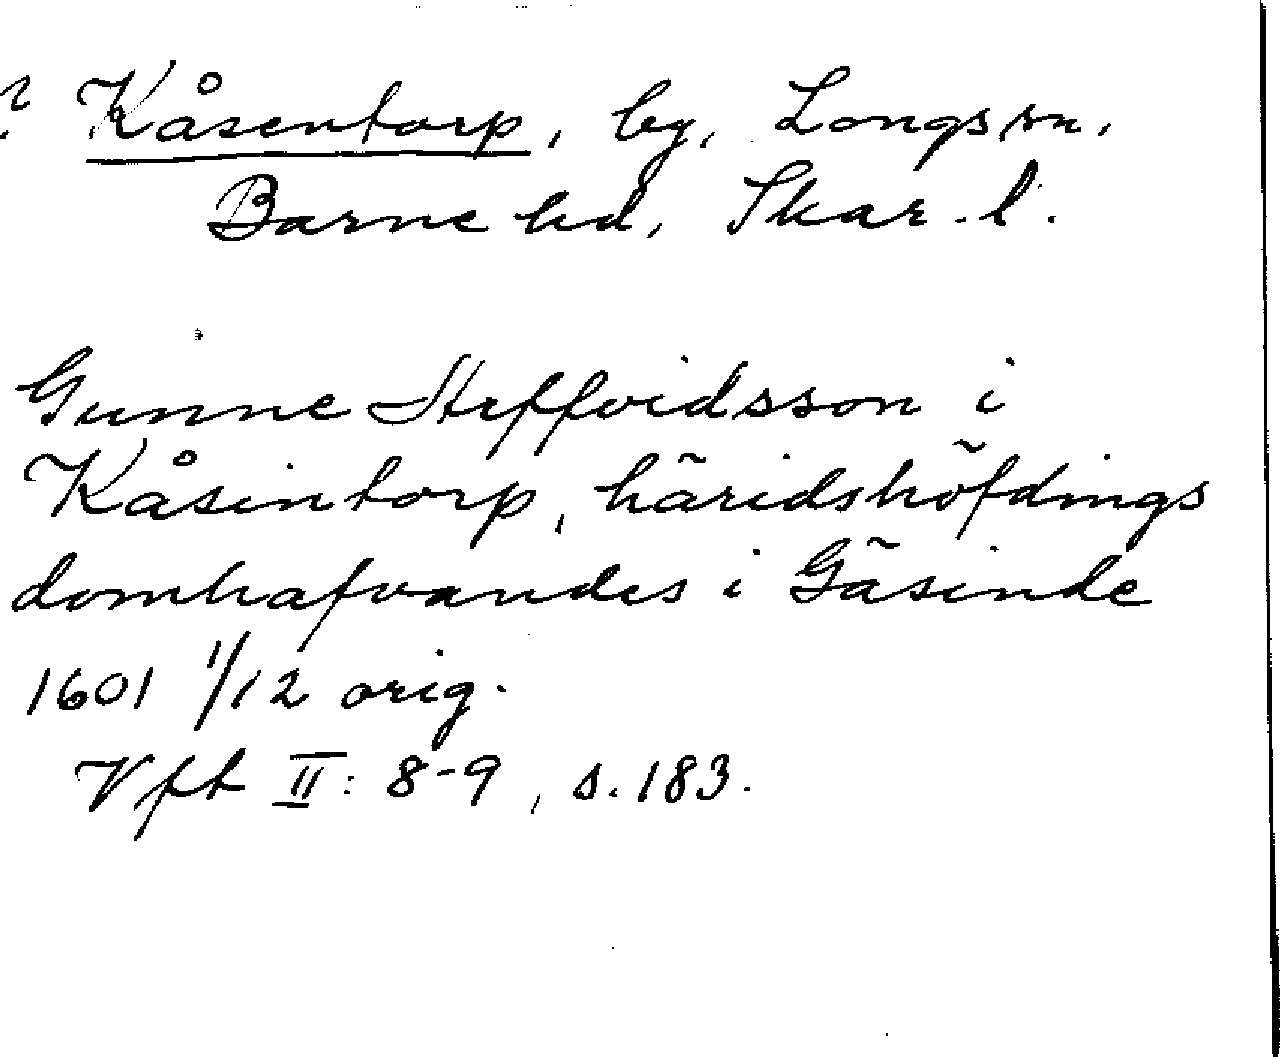 ? Kåsentorp, by, Longs sn,
Barne hd, Skar. l.
Gunne Steffvidsson i
Kåsintorp, häridshöfdings
domhafvandes i Gäsinde
1601 1/12 orig.
Vft II: 8-9, s. 183.